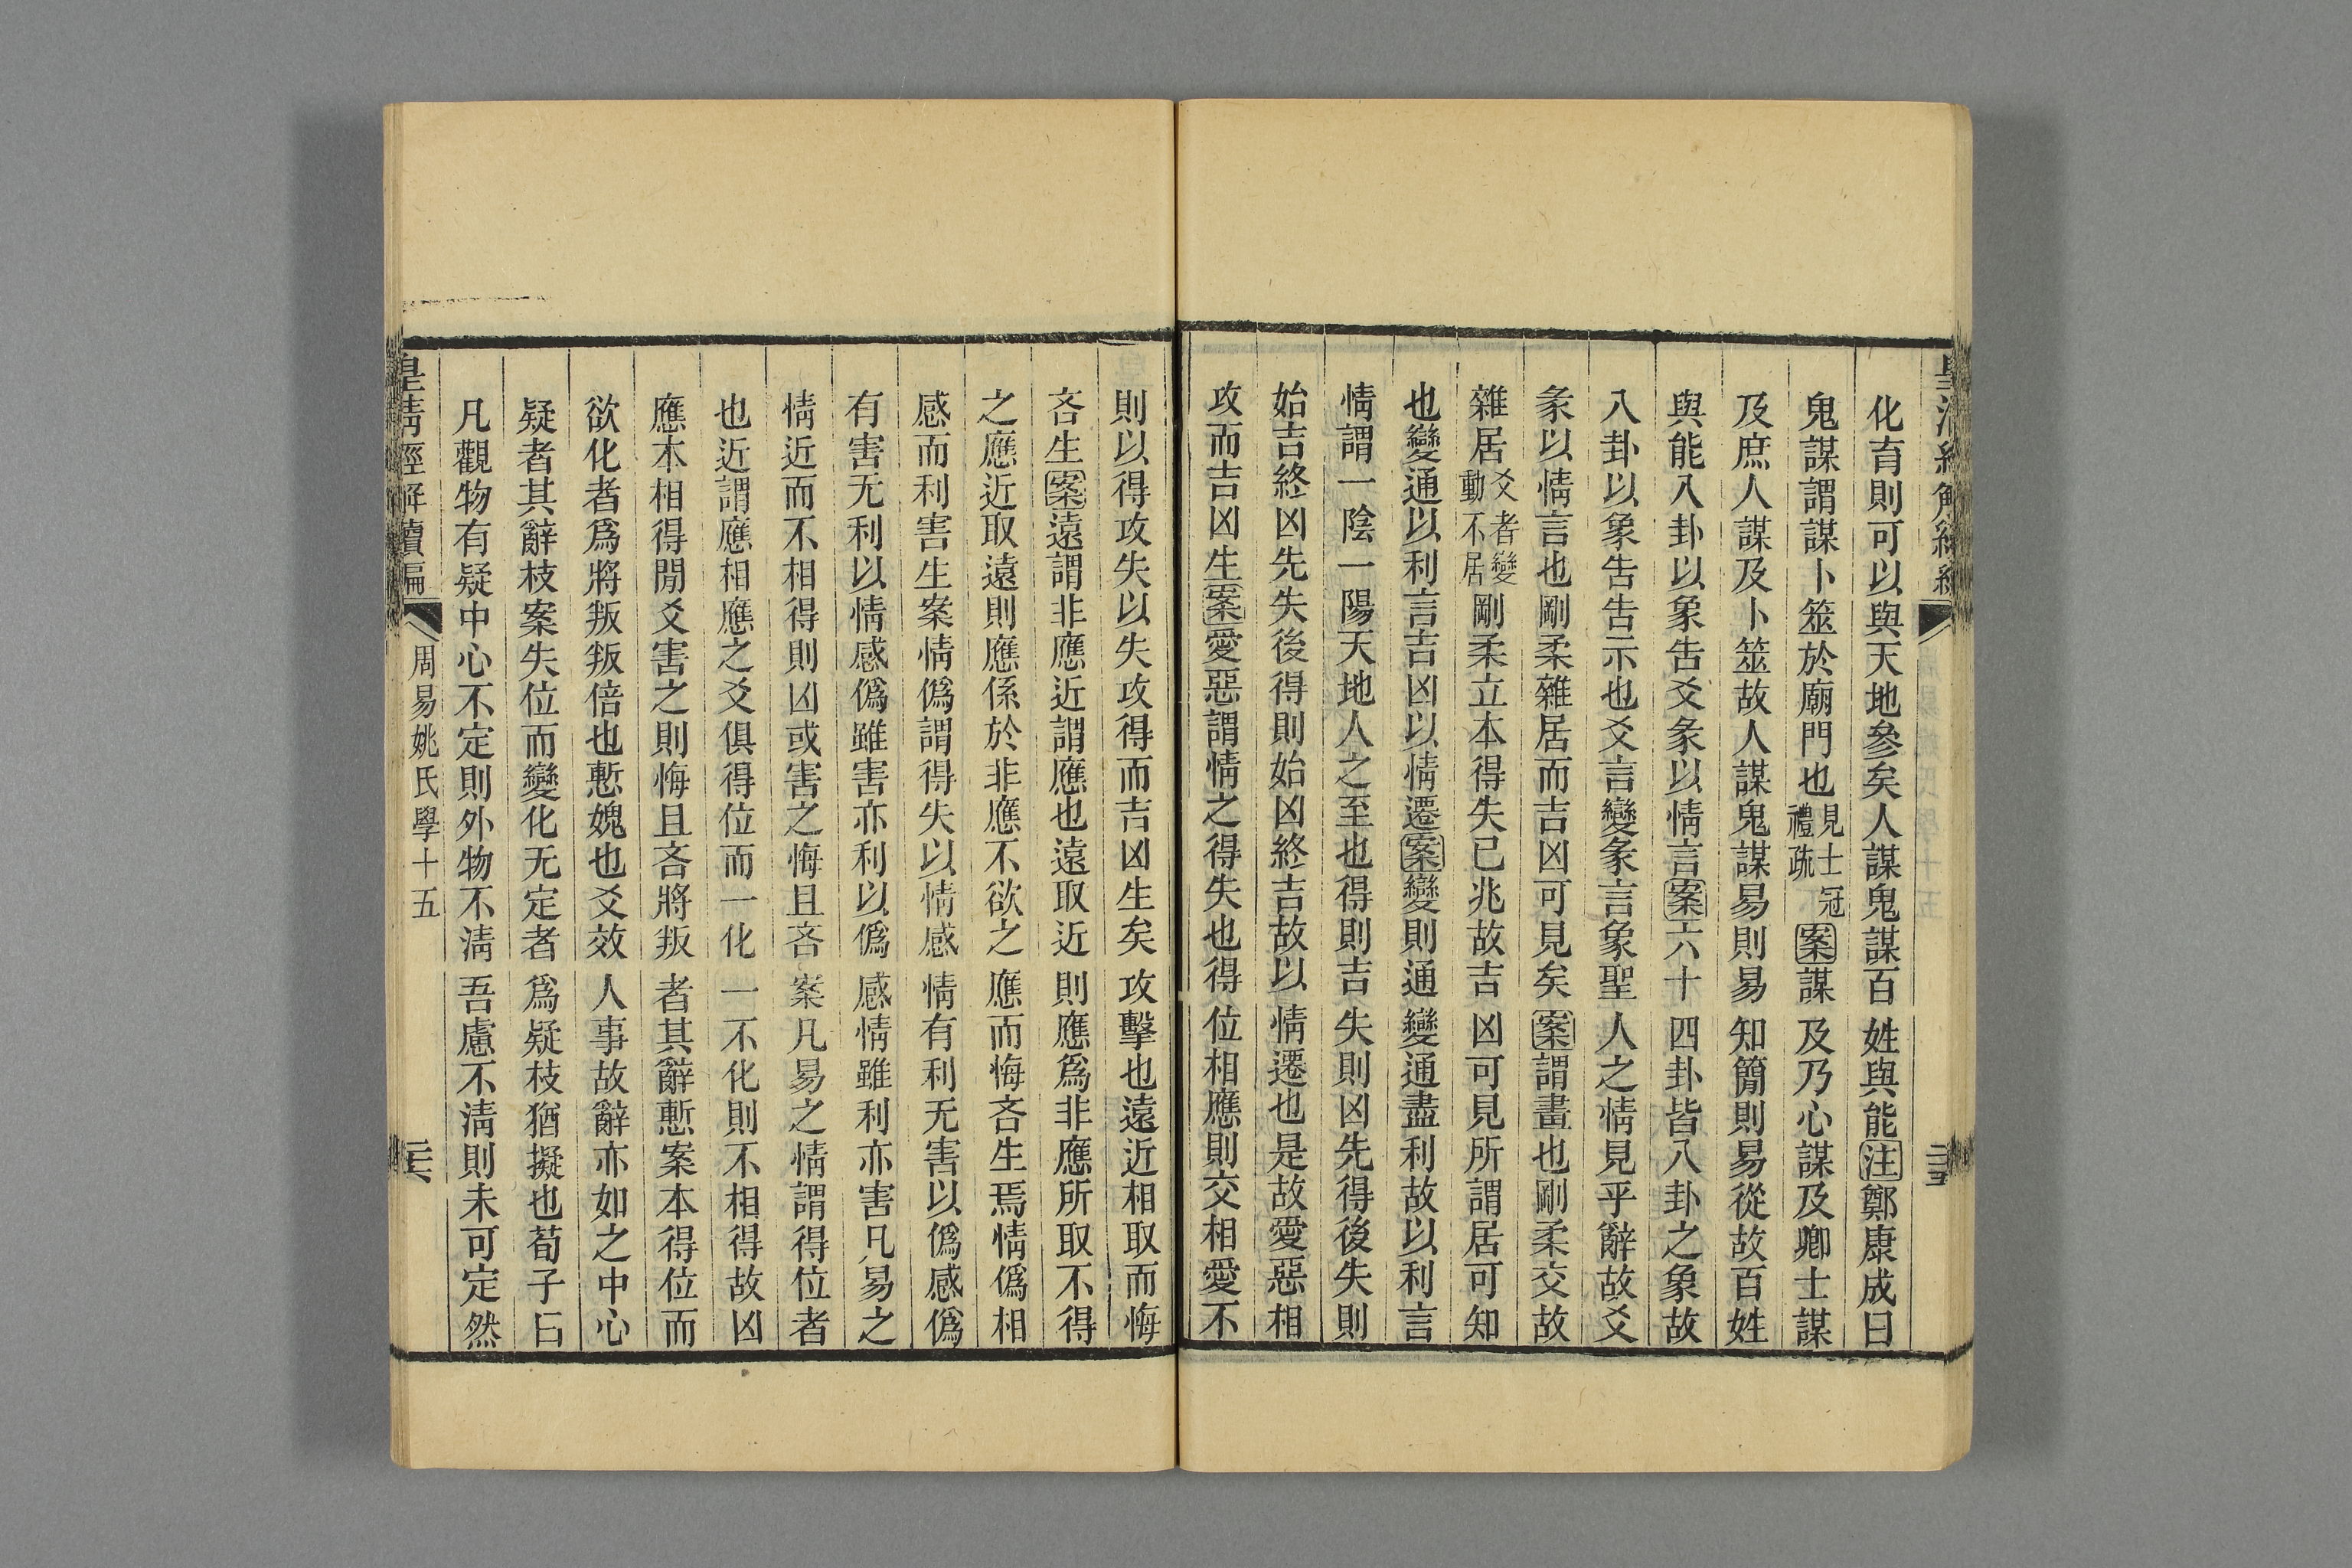 化育則可以與天地參矣人謀鬼謀百姓與能注鄭康成曰
鬼謀謂謀卜筮於廟門也見士冠禮疏案謀及乃心謀及卿士謀
及庶人謀及卜筮故人謀鬼謀易則易知簡則易從故百姓
與能八卦以象告爻彖以情言案六十四卦皆八卦之象故
八卦以象告告示也爻言變彖言象聖人之情見乎辭故爻
彖以情言也剛柔雜居而吉凶可見矣案謂畫也剛柔交故
雜居爻者變動不居剛柔立本得失已兆故吉凶可見所謂居可知
也變通以利言吉凶以情遷案變則通變通盡利故以利言
情謂一陰一陽天地人之至也得則吉失則凶先得後失則
始吉終凶先失後得則始凶終吉故以情遷也是故愛惡相
攻而吉凶生案愛惡謂情之得失也得位相應則交相愛不
則以得攻失以失攻得而吉凶生矣攻擊也遠近相取而悔
吝生案遠謂非應近謂應也遠取近則應爲非應所取不得
之應近取遠則應係於非應不欲之應而悔吝生焉情僞相
感而利害生案情僞謂得失以情感情有利无害以僞感僞
有害无利以情感僞雖害亦利以僞感情雖利亦害凡易之
情近而不相得則凶或害之悔且吝案凡易之情謂得位者
也近謂應相應之爻俱得位而一化一不化則不相得故凶
應本相得閒爻害之則悔且吝將叛者其辭慙案本得位而
欲化者爲將叛叛倍也慙媿也爻效人事故辭亦如之中心
疑者其辭枝案失位而變化无定者爲疑枝猶擬也荀子曰
凡觀物有疑中心不定則外物不淸吾慮不淸則未可定然
皇淸經解續編
周易姚氏學十五
二十六